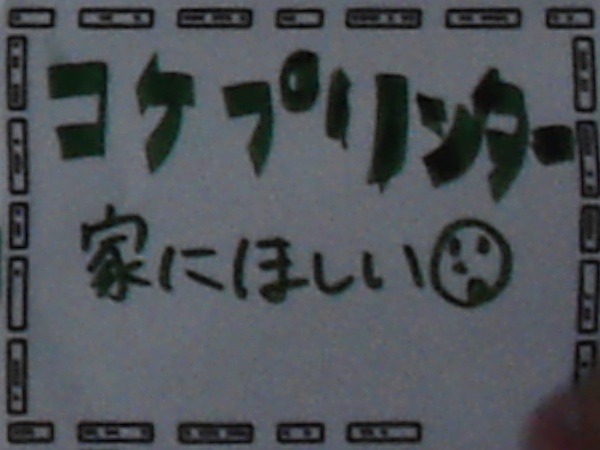 コケプリンター
家にほしい